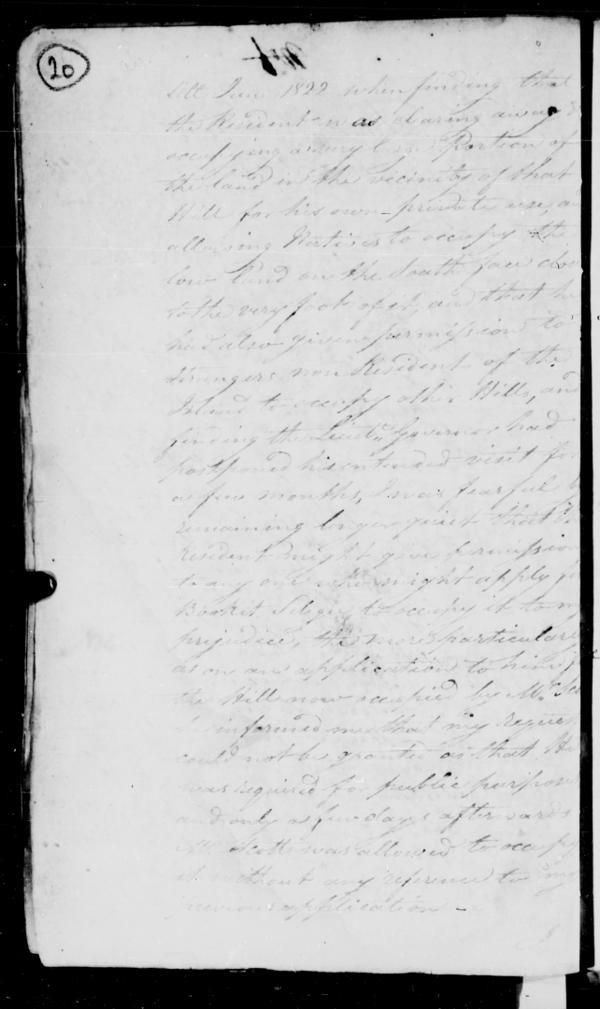 20
till June 1822 when finding that
the Resident was clearing away &
occupying a very large Portion of
the land in the vicinity of that
Hill for his own private use, a
allowing Natives to occupy the
low land on the South face clo
to the very foot of it, and that he
had also given permission to
strangers non Resident of the
Island to occupy other Hills, and
finding the Lieut. Governor had
postponed his intended visit for
a few months, I was fearful by
remaining longer quiet that the
Resident might give permission
to any one who might apply for
Bookit Selegy to occupy it to my
prejudice, the more particularly
as on an application to him f
the Hill now occupied by Mr. Sco
he informed me that my request
could not be granted as that Hi
was required for public purpose
and only a few days afterwards
Mr Scott was allowed to occupy
it without any reference to my
previous application —